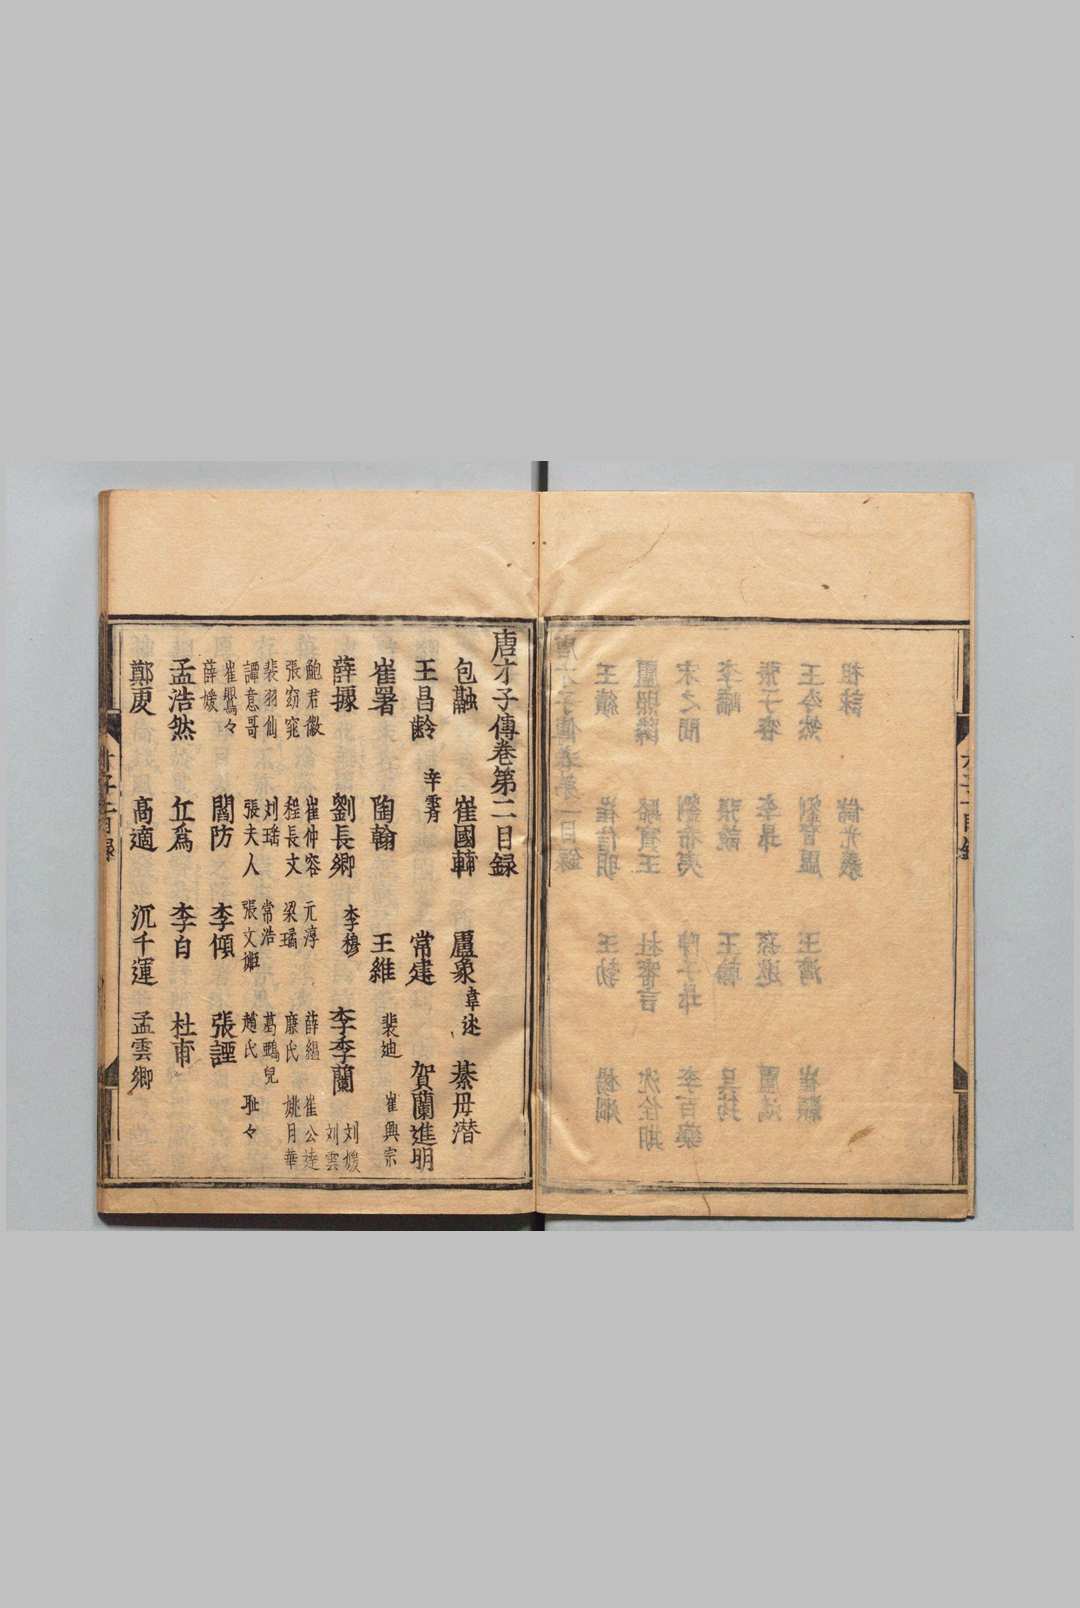 唐才子傳卷第二目録
包融 崔國輔 盧象 韋述 綦毋潜
王昌齡 辛霽 常建 賀蘭進明
崔署 陶翰 王維 裴迪 崔興宗
薛據 劉長卿 李穆 李季蘭 刘媛 刘雲
鮑君徽 崔仲容 元淳 薛緼 崔公逵
張窈窕 程長文 梁璚 廉氏 姚月華
裴羽仙 刘瑶 常浩 葛鵶兒
譚意哥 張夫人 張文姬 趙氏 耻々
崔鶯々 薛媛 閻防 李頎 張諲
孟浩然 丘爲 李白 杜甫
鄭虔 髙適 沉千運 孟雲卿
才子二目録